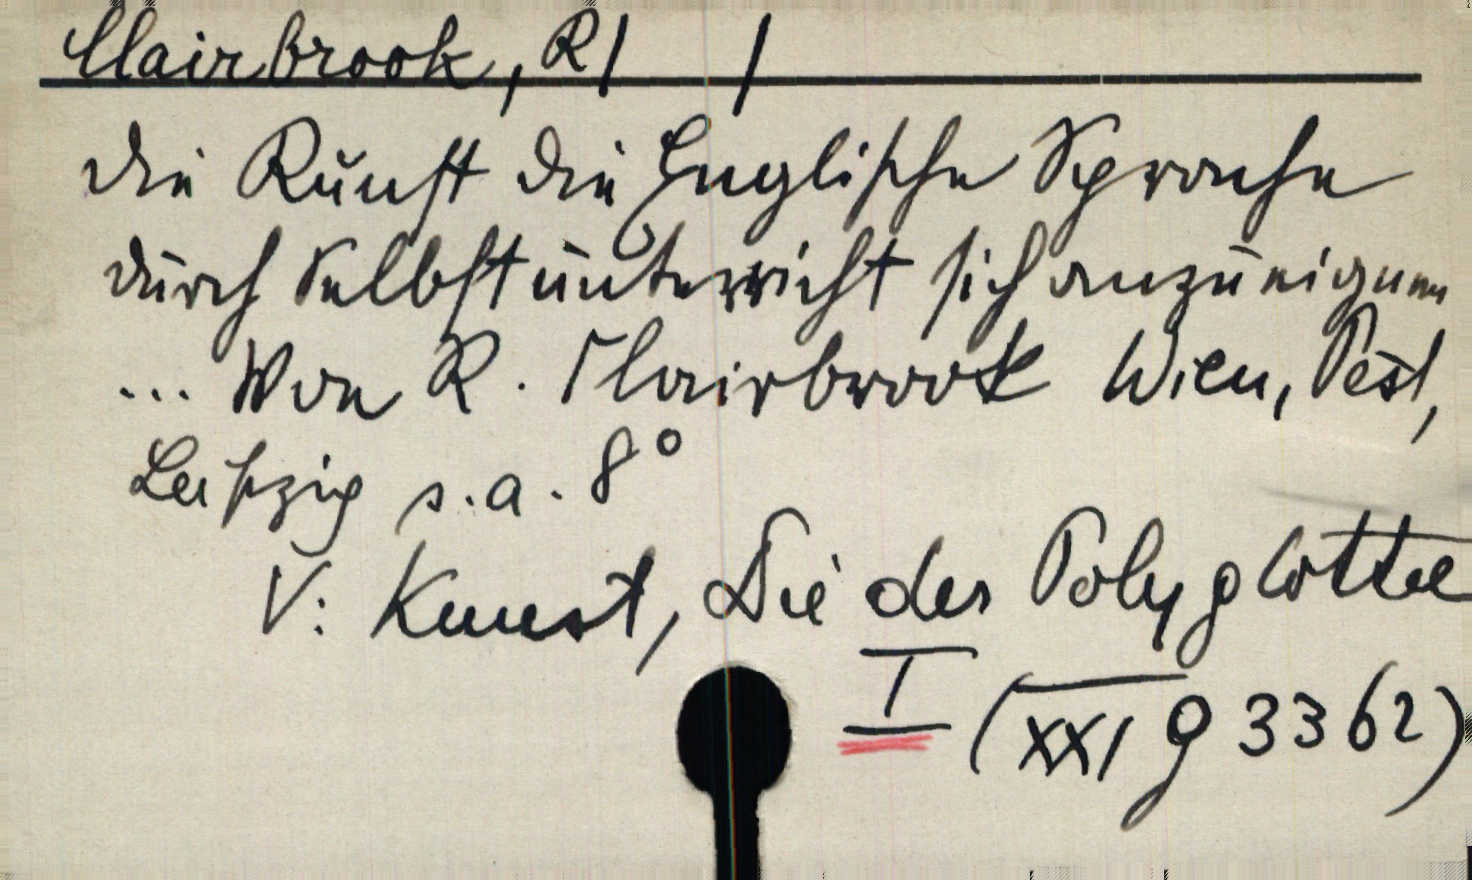 Clairbrook, R/ /
Die Kunst die Englische Sprache
durch Selbstunterricht sich anzueignen
... Von R. Clairbrook Wien, Pest,
Leipzig s. a. 8°
V: Kunst, Die der Polyglottie
I (XXI g 3362)